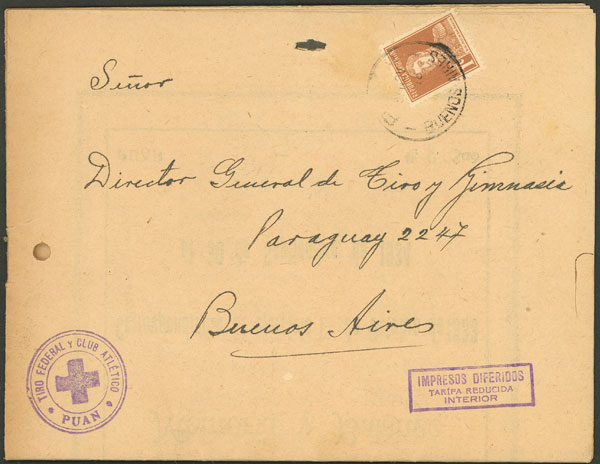 Señor
Director General de Tiro y Gimnasia
Paraguay 2247
Buenos Aires
TIRO FEDERAL Y CLUB ATLÉTICO
PUAN
IMPRESOS DIFERIDOS
TARIFA REDUCIDA
INTERIOR
BUENOS AIRES